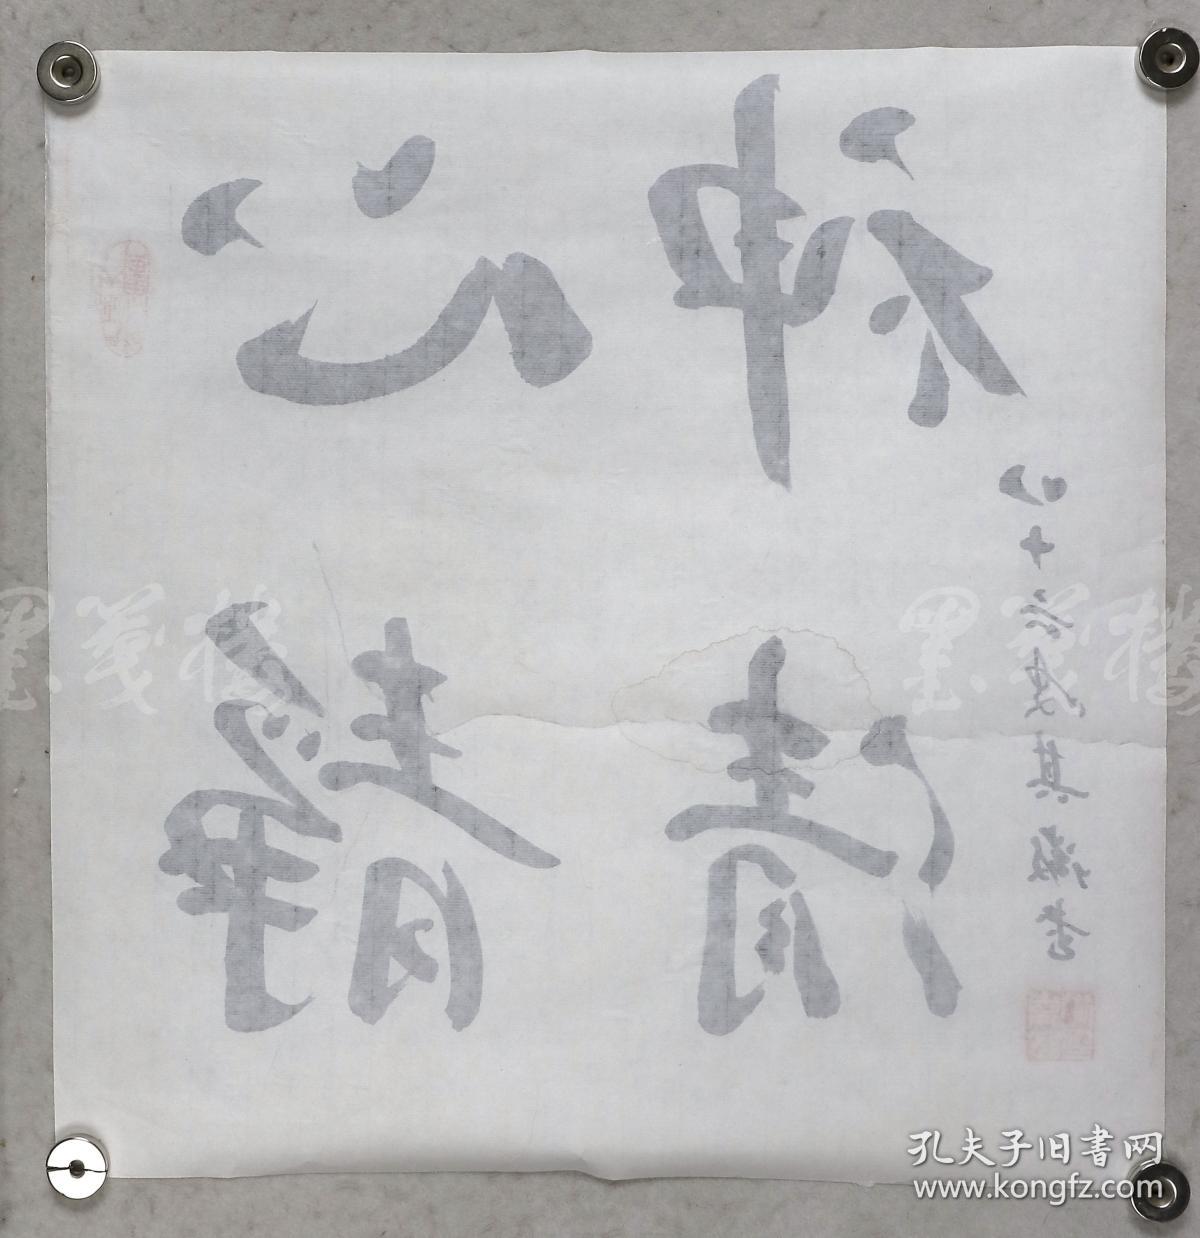 心静
神清
八十六叟其书
墨笺楼
墨笺楼
孔夫子旧书网
www.kongfz.com